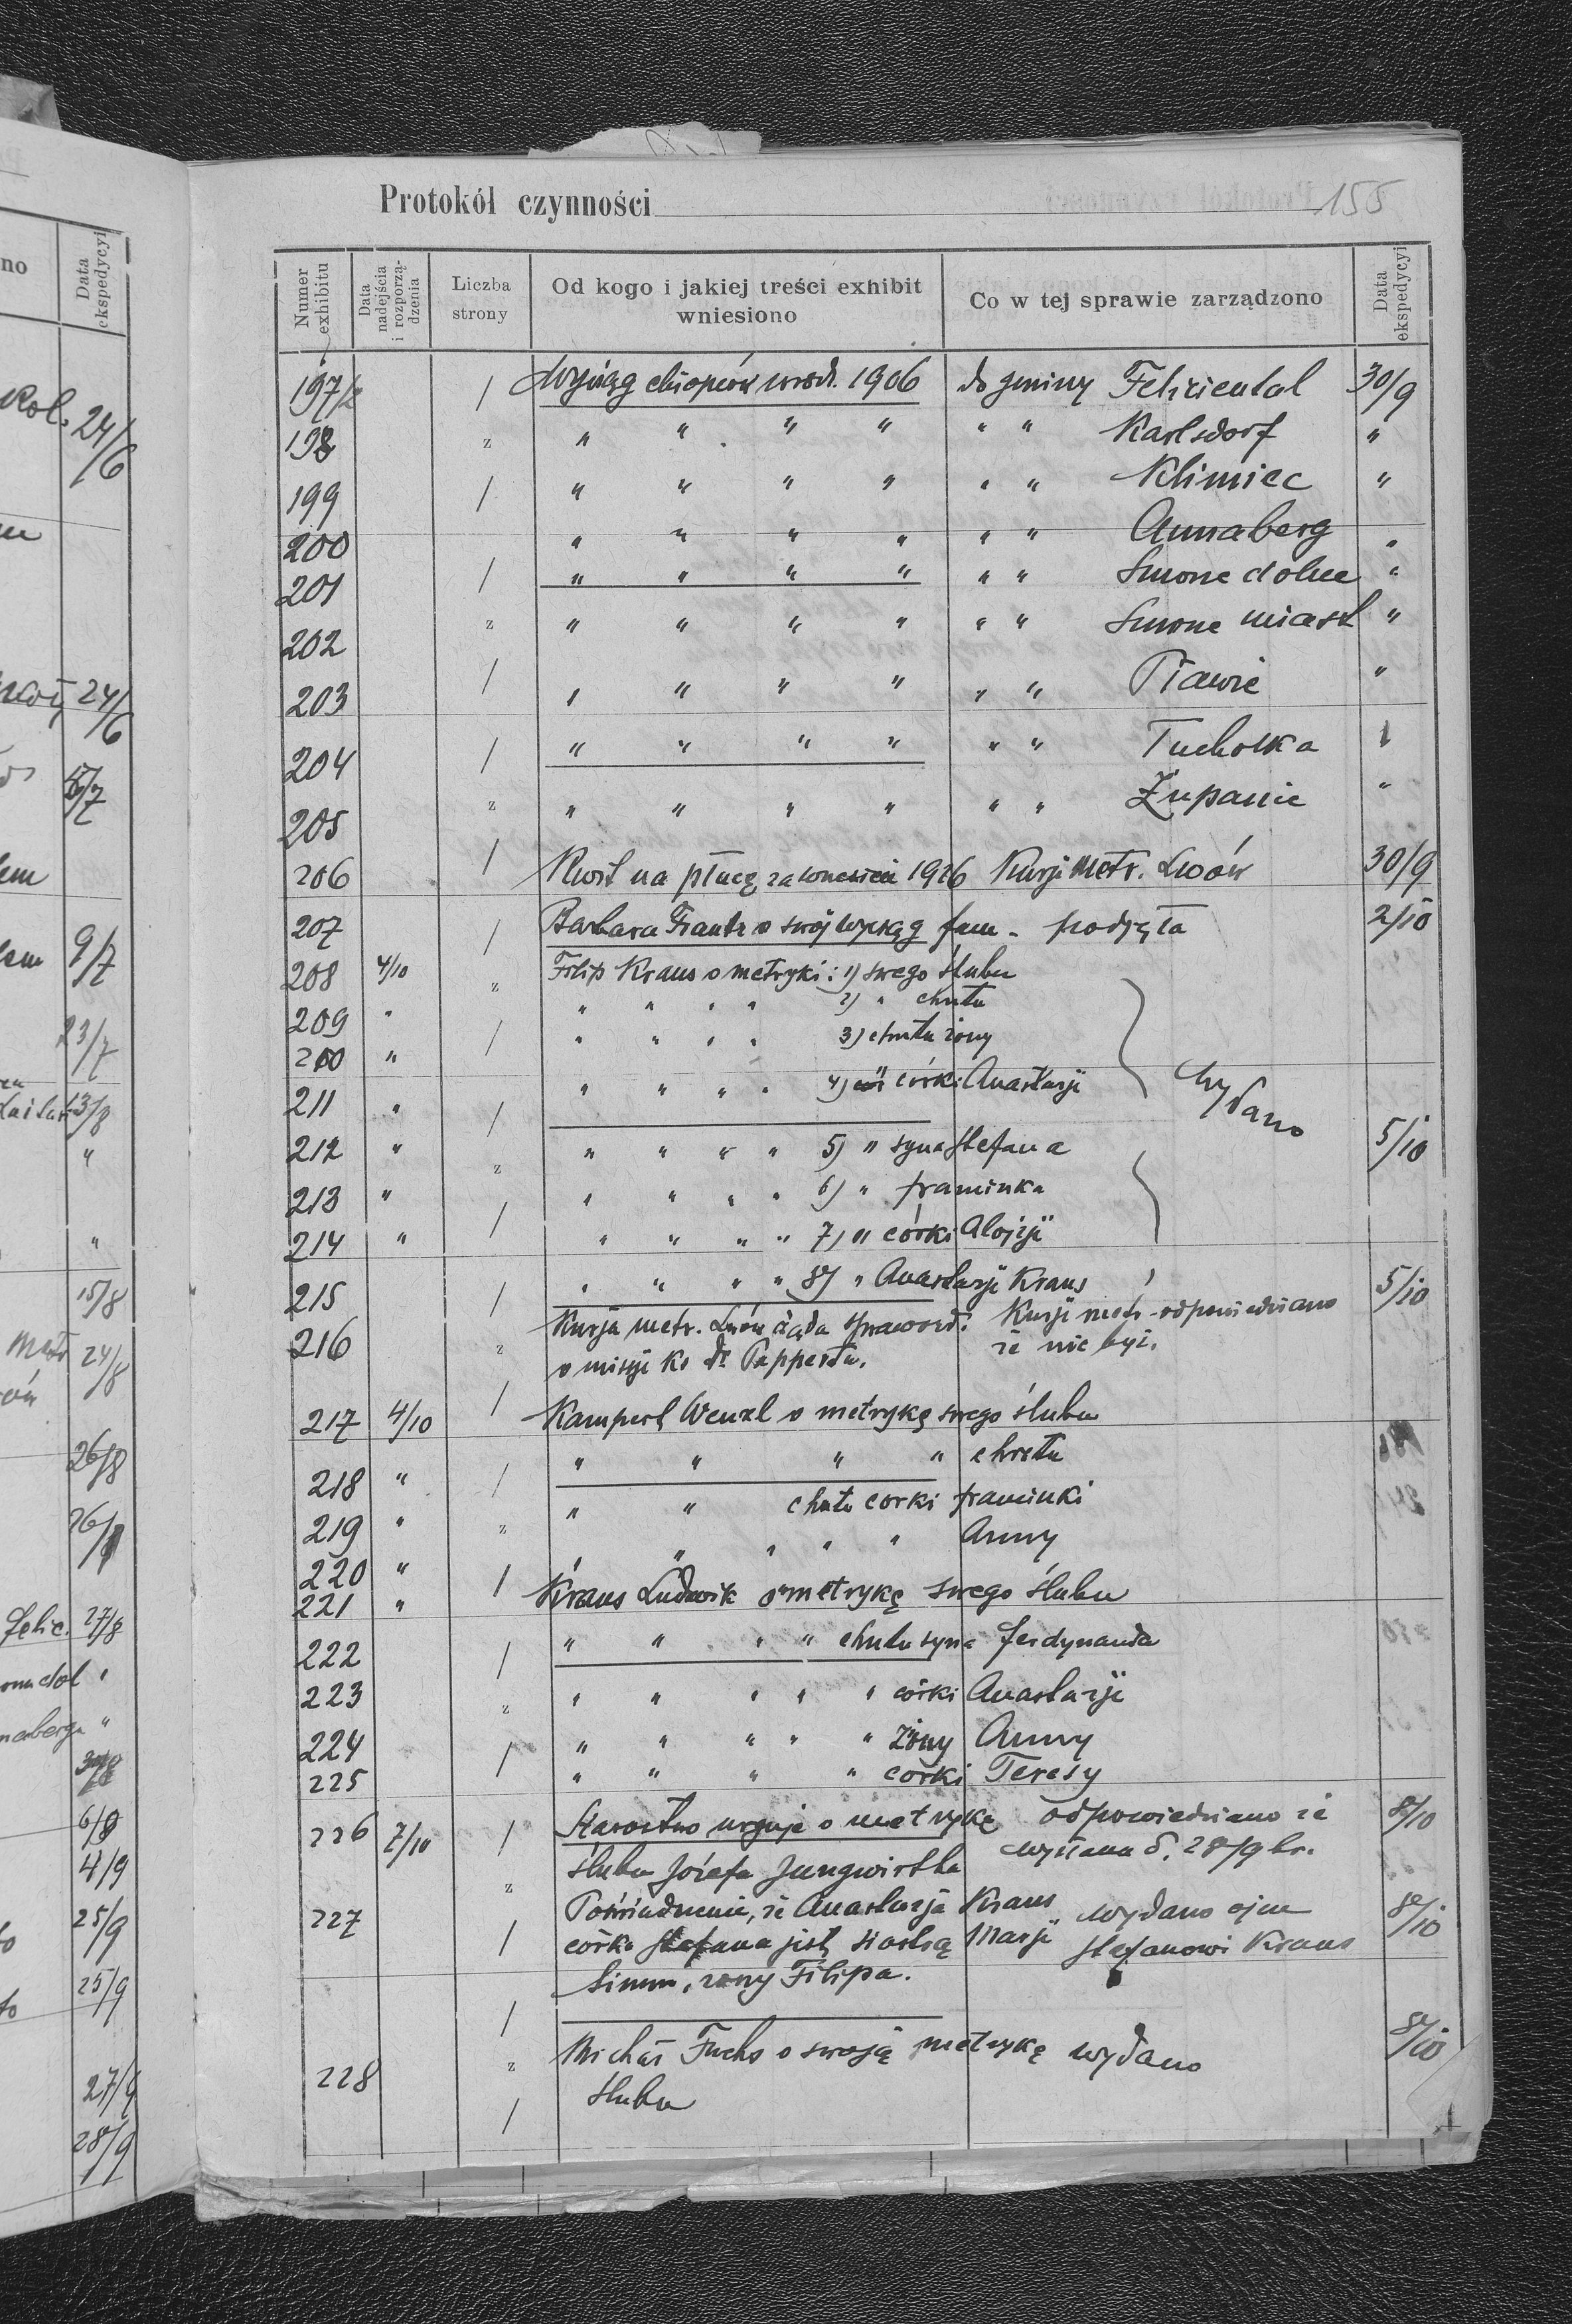 Protokół czynności 155
Numer exhibitu
Data nadejścia i rozporzą-dzenia
Liczba strony
Od kogo i jakiej treści exhibit wniesiono
Co w tej sprawie zarządzono
Data ekspedycyj
197/2 / Wyciąg chłopców urodz. 1906 do gminy Feliziental 30/9
198 z " " " " " " Karlsdorf "
199 / " " " " " " Klimiec "
200 " " " " " " Annaberg "
201 / " " " " " " Smorze dolne "
202 z " " " " " " Smorze miast "
203 / " " " " " " Pławie "
204 / " " " " " " Tucholka "
205 z " " " " " " Żupanie "
206 / Kwit na płacę za 1926 Kurji Metr. Lwów 30/9
207 / Barbara Frantz o swój wyciąg fam - podjęła 2/10
208 4/10 z Filip Kraus o metryki: 1) swego ślubu
209 " " " " " 2) " chrztu
210 " / " " " " 3) chrztu żony
211 " / " " " " 4) córki Anastazji
wydano
212 " z " " " " 5) " syna Stefana 5/10
213 " " " " " 6) " franciszka
214 " / " " " " 7) " córki Alojzji
215 / " " " " 8) " Anastazji Kraus 5/10
216 z Kurja metr. Lwów żąda sprawozd. Kurji metr. odpowiedziano
o misji ks dr Papperta. że nie był.
217 4/10 / Kamperl Wenzl o metrykę swego ślubu
218 " / " " " " chrztu
219 " z " " chrztu córki franciszki
220 " " " " " " Anny
221 " / Kraus Ludwik o metrykę swego ślubu
222 / " " " " chrztu syna ferdynanda
223 z " " " " " córki Anastazji
224 / " " " " " żony Anny
225 " " " " córki Teresy
226 7/10 / Starostwo urguje o metrykę odpowiedziano że 8/10
ślubu Józefa Jungwirtha wysłana d. 28/9 br.
227 z Poświadczenie, że Anastazja Kraus wydano ojcu 8/10
/ córka Stefana jest siostrą Marji Stefanowi Kraus
Simon, żony Filipa.
228 z Michał Fuchs o swoją metrykę wydano 8/10
/ ślubu
24/6
24/6
5/7
9/7
23/7
13/8
"
"
15/8
24/8
26/8
27/8
6/9
4/9
25/9
25/9
27/9
28/9